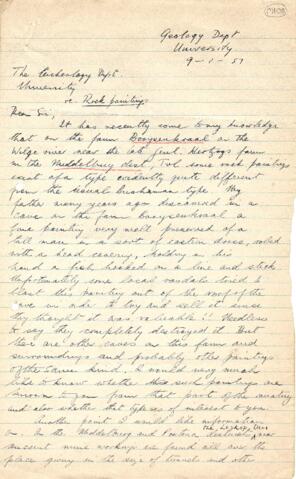 Geology Dept
University
9-1-51
The Archaeology Dept.
University
re. Rock paintings
Dear Sir,
It has recently come to my knowledge
that on the farm Booysenkraal on the
Wilge river near the late Genl. Hertzogs farm
in the Middelburg dist, Tvl some rock paintings
exist of a type evidently quite different
from the usual Bushman type. My
father many years ago discovered in a
cave on the farm Booysenkraal a
fine painting very well preserved of a
tall man in a sort of eastern dress, robed
with a head covering, holding in his
hand a fish hooked on a line and stick
Unfortunately some local vandals tried to
blast this painting out of the roof of the
cave in order to try and sell it since
they thought it was valuable!! Needless
to say they completely destroyed it. But
there are other caves on this farm and
surroundings and probably other paintings
of the same kind. I would very much
like to know whether such paintings are
known to you from that part of the country
and also whether that type is of interest to you.
Another point I would like information
on. In the Middelburg and Pretoria districts
ancient mine workings are found all over the
place going in the size of trench and other